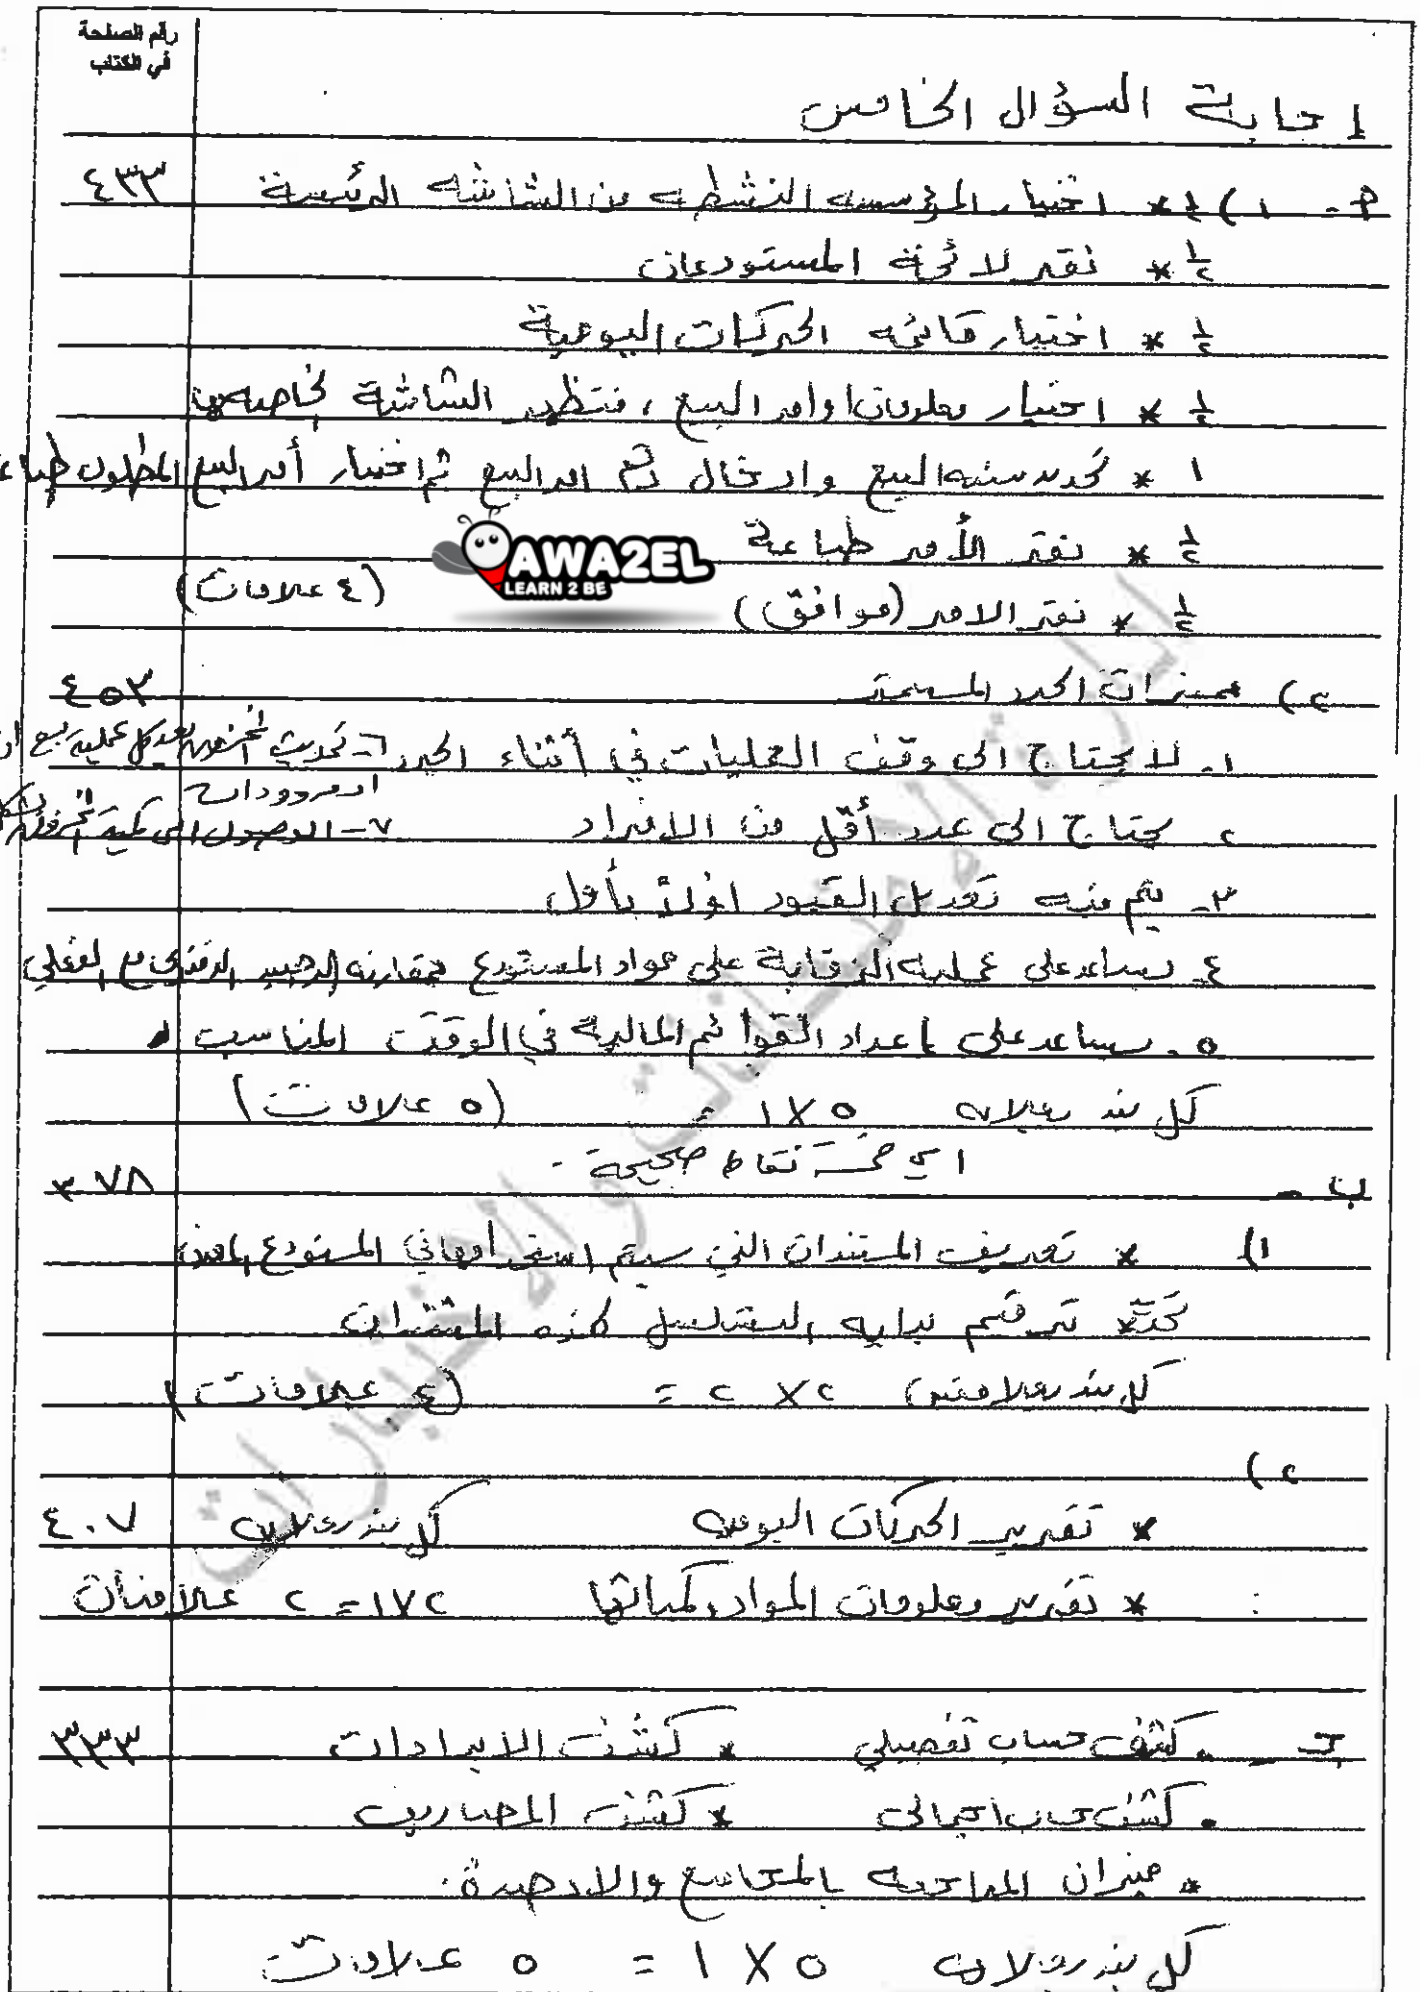 رقم الصفحة
في الكتاب
إجابة السؤال الخامس
٤٣٣
أ - ١) ½ * اختيار المؤسسه النشطه من الشاشه الرئيسة
½ * نقر لائحة المستودعات
½ * اختيار قائمه الحركات اليومية
½ * اختيار معلومات اوامر البيع ، فتظهر الشاشة الخاصه بها
١ * تحديد سنه البيع وادخال رقم امر البيع ثم اختيار أمر البيع المطلوب طباع
½ * نقر الأمر طباعة
AWA2EL
LEARN 2 BE
½ * نقر الامر (موافق) (٤ علامات)
٢) مميزات الجرد المستمر
٤٥٣
١- لا يحتاج الى وقف العمليات في أثناء الجرد ٦- تحديث المخزون بعد كل عملية بيع او
او مردودات
٢- يحتاج الى عدد أقل من الافراد ٧- الوصول الى كمية المخزون
٣- يتم فيه تعديل القيود اولاً بأول
٤- يساعد على عملية الرقابة على مواد المستودع بمقارنه الرصيد الدفتري مع الفعلي
٥- يساعد على إعداد القوائم المالية في الوقت المناسب
كل بند بعلامه ٥ × ١ = (٥ علامات)
اي خمسة نقاط صحيحة -
ب -
٣٧٨
١) * تعريف المستندات التي سيتم استخدامها في المستودع
* ترقيم بدايه التسلسل لهذه المستندات
كل بند بعلامتين ٢ × ٢ = (٤ علامات)
٢)
* تقرير الحركات اليوميه كل بند بعلامه
٤٠٧
* تقرير معلومات المواد وكمياتها ٢×١ = ٢ علامتان
جـ - . كشف حساب تفصيلي * كشف الايرادات
٣٣٣
. كشف حساب اجمالي * كشف المصاريف
* ميزان المراجعه بالمجاميع والارصدة .
كل بند بعلامه ٥ × ١ = ٥ علامات
إدارة الامتحانات والاختبارات